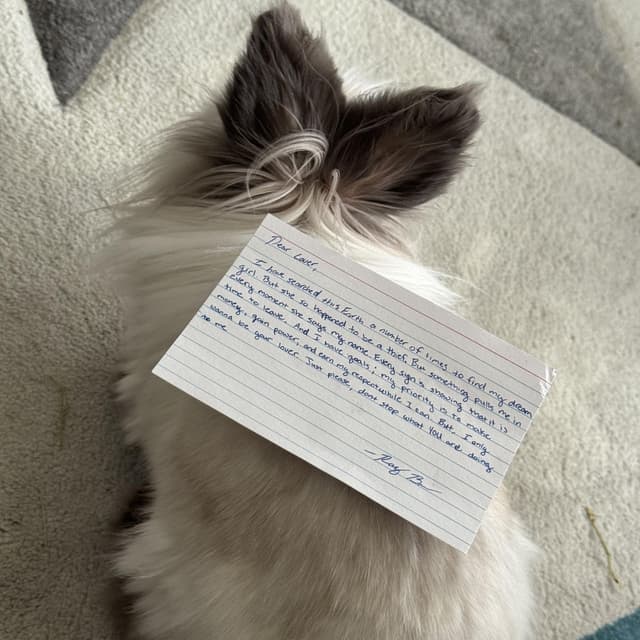 Dear Lover,
I have searched this Earth a number of times to find my dream
girl. But she so happened to be a thot. But something pulls me in
every moment she sings my name. Every sign is showing them it is
time to leave. And I have goals; my priority is to make
money, gain power, and earn my respect while I can. But, I only
wanna be your lover. Just please, don't stop what you are doing
to me.